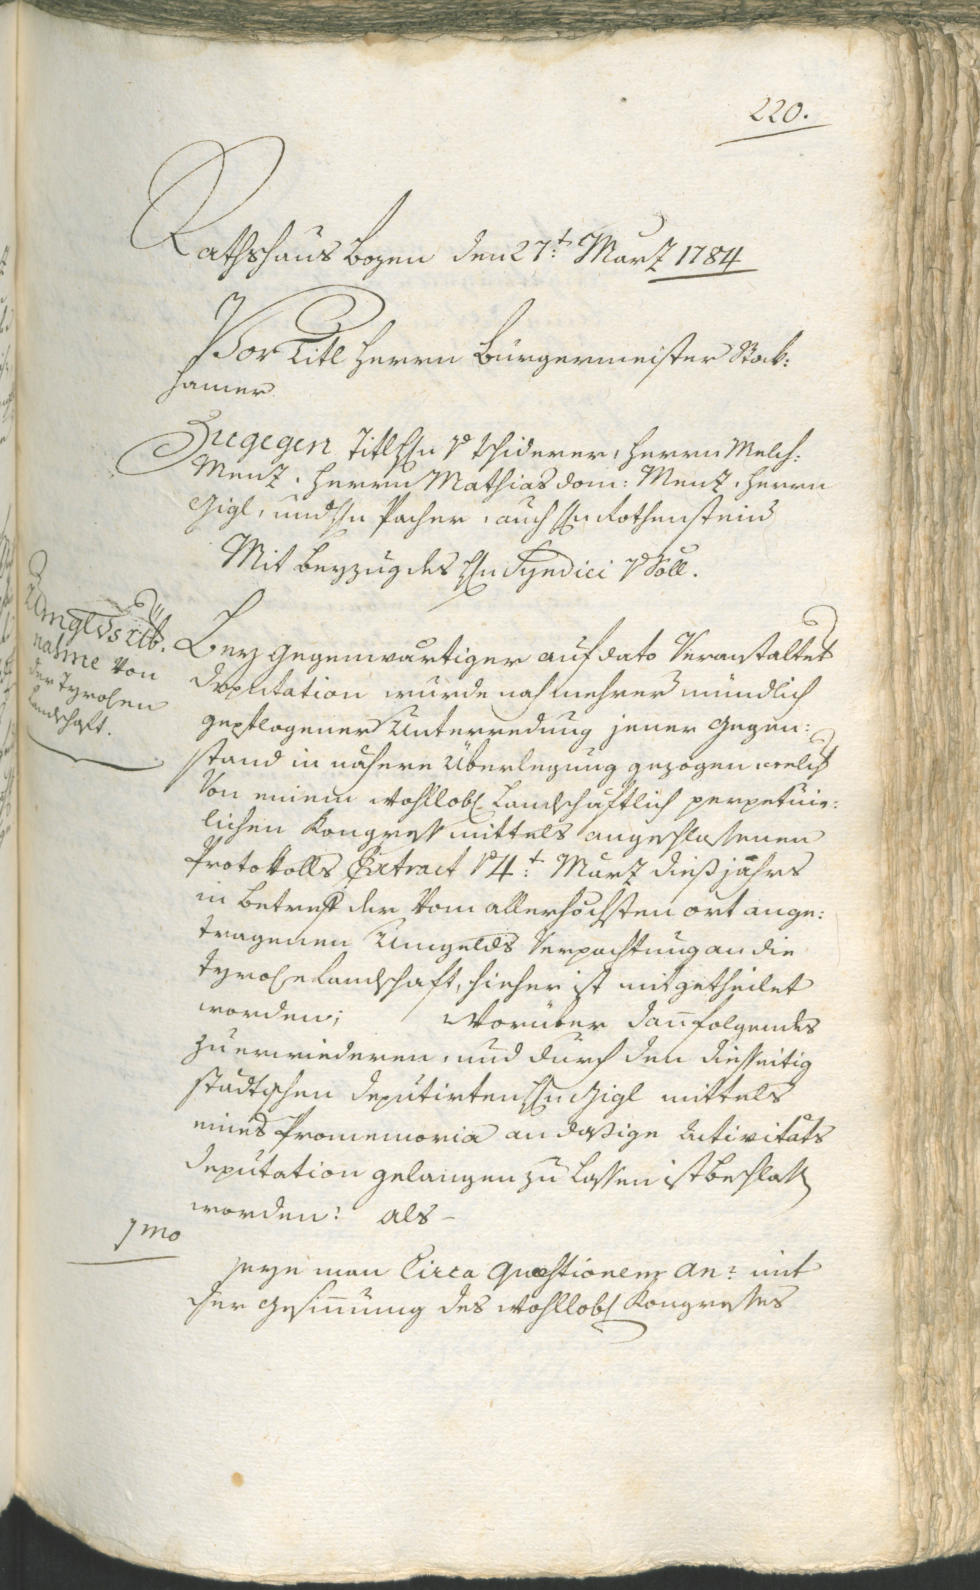 220.
Rathshaus Bozen den 27t: Märtz 1784
Vor Titl Herrn Burgermeister Stok:
hamer
Hiegegen Titl Hn v Tschiderer, Herrn Melch:
Menz. Herrn Mathias Dom: Menz, Herrn
Gigl, und Hn Pacher, auch Hn Rothensteiner
Mit beyzug des Hn Syndici v Söll.
Umgelds übernahme
von
der Tyrolen
Landschaft.
Bey gegenwärtiger auf dato Veranstalter
Deputation wurde nach mehrers mündlich
gepflogener Unterredung jener Gegen:
stand in nähere Überlegung gezogen welch
Von einem wohllobl. Landschäftlich perpetuir:
lichen Kongress mittels angeschlossenen
Protokolls Extract v 4t: Märtz diess jahrs
in betreff der vom allerhöchsten ort ange:
tragenen Umgelds Verpachtung an die
Tyrole Landschaft, hieher ist mitgetheilet
worden; Worüber dann folgendes
zuerwiederen, und durch den diesseitig
städtischen deputirten Hn Gigl mittels
eines Promemoria an dasige Activitäts
deputation gelangen zu lassen ist beschlossen
worden: als –
1mo
seye man Circa Quaestionem An: mit
der Gesinnung des wohllobl Kongresses